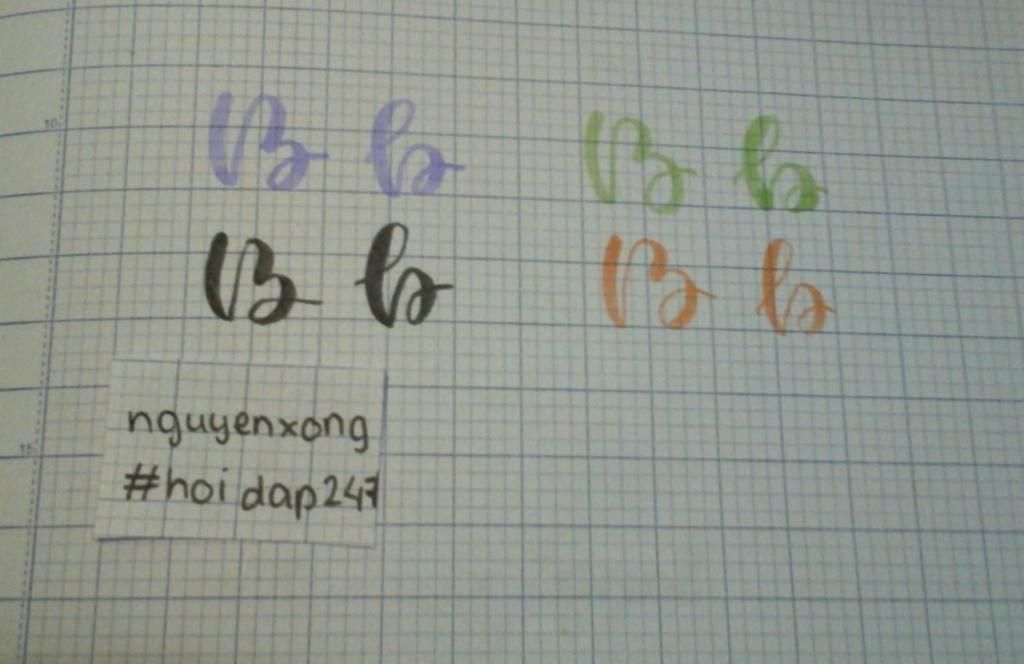 B b B b
B b B b
10
15
nguyenxong
#hoidap247